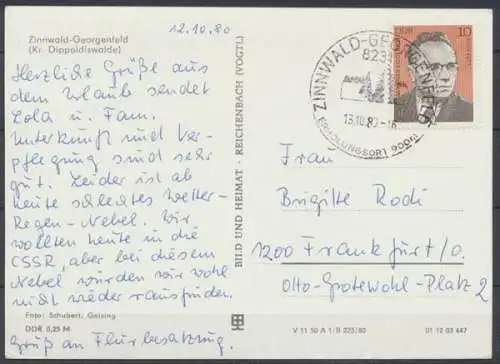 12.10.80
Zinnwald-Georgenfeld
(Kr. Dippoldiswalde)
Herzliche Grüße aus
dem Urlaub sendet
Lola u. Fam.
Unterkunft und Ver-
pflegung sind sehr
gut. Leider ist ab
heute schlechtes Wetter-
Regen-Nebel. Wir
wollten heute in die
CSSR, aber bei diesem
Nebel würden wir wohl
nicht wieder rausfinden.
Foto: Schubert, Geising
DDR 0,25 M
Gruß an Flurbesatzung.
BILD UND HEIMAT · REICHENBACH (VOGTL)
ZINNWALD-GEORGENFELD
823
13.10.80-18
ERHOLUNGSORT 900m
DDR 10
Frau
Brigitte Rodi
1200 Frankfurt/O.
Otto-Grotewohl-Platz 2
V 11 50 A 1/B 225/80 01 12 03 447